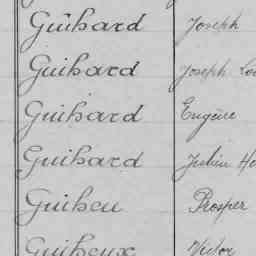 Guihard Joseph
Guihard Joseph Lou
Guihard Eugène
Guihard Julien He
Guiheu Prosper
Guiheux Victor